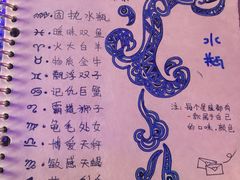 ♒ 固执水瓶
♓ 暧昧双鱼
♈ 火大白羊
♉ 物质金牛
♊ 飘浮双子
♋ 记仇巨蟹
♌ 霸道狮子
♍ 龟毛处女
♎ 博爱天秤
♏ 敏感天蝎
水
瓶
注:每个星座都有
一款属于自己
的口味、颜色